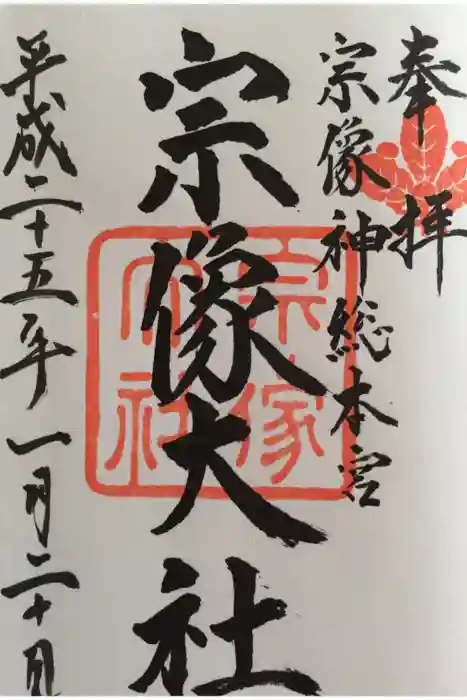 奉拝
宗像神総本宮
宗像大社
宗像大社
平成二十五年一月二十日